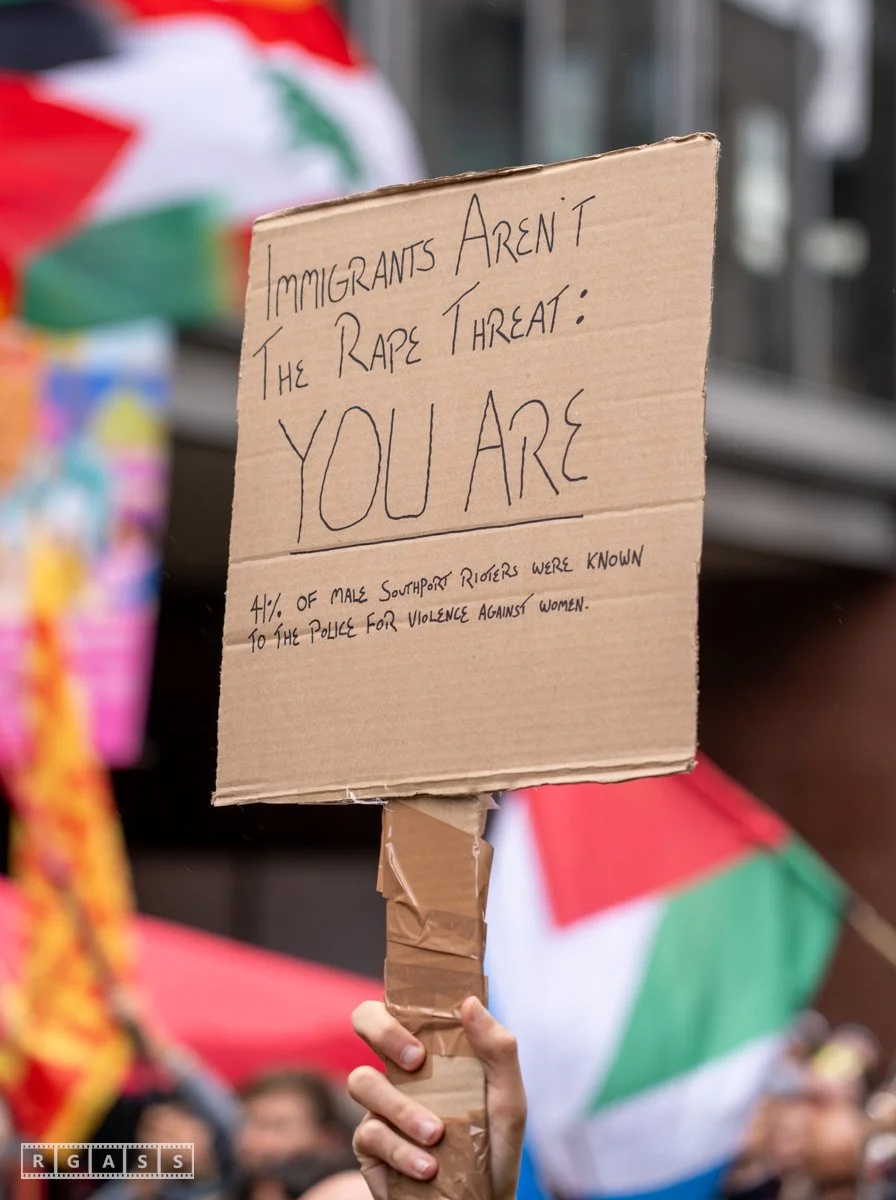 IMMIGRANTS AREN'T
THE RAPE THREAT:
YOU ARE
41% OF MALE SOUTHPORT RIOTERS WERE KNOWN
TO THE POLICE FOR VIOLENCE AGAINST WOMEN.
RGASS